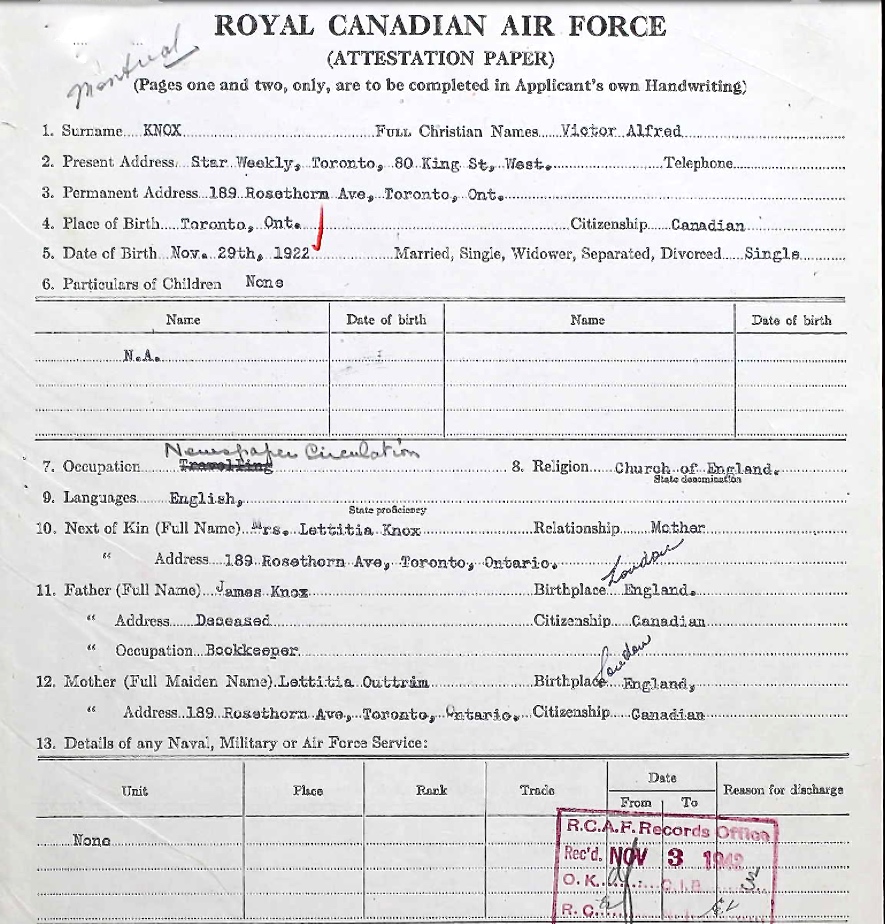 ROYAL CANADIAN AIR FORCE
(ATTESTATION PAPER)
Montreal
(Pages one and two, only, are to be completed in Applicant's own Handwriting)
1. Surname KNOX Full Christian Names Victor Alfred
2. Present Address Star Weekly, Toronto, 80 King St, West. Telephone
3. Permanent Address 189 Rosethorn Ave, Toronto, Ont.
4. Place of Birth Toronto, Ont. Citizenship Canadian
5. Date of Birth Nov. 29th, 1922 Married, Single, Widower, Separated, Divorced Single
6. Particulars of Children None
Name Date of birth Name Date of birth
N.A.
Newspaper Circulation
7. Occupation Travelling 8. Religion Church of England.
State denomination
9. Languages English,
State proficiency
10. Next of Kin (Full Name) Mrs. Lettitia Knox Relationship Mother
" Address 189 Rosethorn Ave, Toronto, Ontario.
London
11. Father (Full Name) James Knox Birthplace England.
" Address Deceased Citizenship Canadian
" Occupation Bookkeeper.
London
12. Mother (Full Maiden Name) Lettitia Outtrim Birthplace England,
" Address 189 Rosethorn Ave, Toronto, Ontario. Citizenship Canadian
13. Details of any Naval, Military or Air Force Service:
Unit Place Rank Trade Date Reason for discharge
From To
None
R.C.A.F. Records Office
Rec'd. NOV 3 1942
O.K. C.I.B.
R.C.